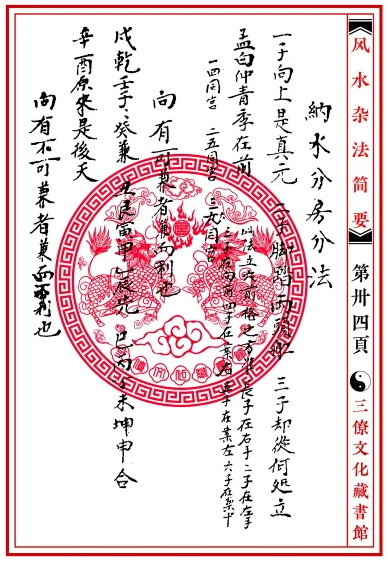 风水杂法简要
第卅四頁
三僚文化藏書館
納水分房分法
一子向上是真元 二子脚踏向頭水 三子却從何処立
孟白仲青季在前 以法立穴前格之方長子在右手二子在左手
三子在向前四子在案右五子在案左六子在案中
一四同宫 二五同宫 三六同宫
向有可兼者兼而利也
戌乾壬子癸兼 丑艮寅甲乙辰先 巳丙午未坤申合
辛酉原來是後天
向有不可兼者兼而不利也